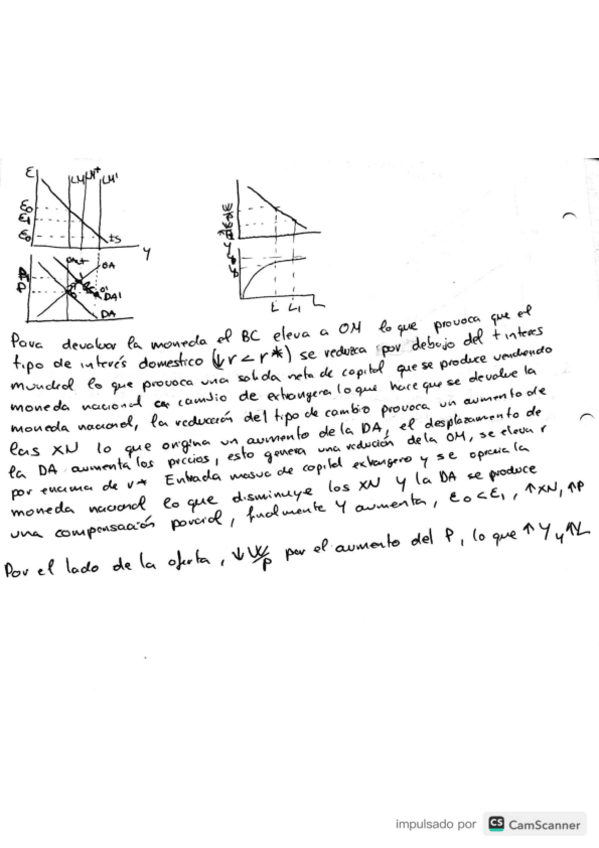 E
LM
LM*
LM'
E0
E1
E0
IS
Y
OA
DA'
DA
L
L1
L
Para devaluar la moneda el BC eleva a OM lo que provoca que el
tipo de interés domestico (↓r<r*) se reduzca por debajo del t interes
mundial lo que provoca una salida neta de capital que se produce vendiendo
moneda nacional en cambio de extrangera lo que hace que se devalue la
moneda nacional, la reducción del tipo de cambio provoca un aumento de
las XN lo que origina un aumento de la DA, el desplazamiento de
la DA aumenta los precios, esto genera una redución de la OM, se eleva r
por encima de r* Entrada masiva de capital extrangero y se aprecia la
moneda nacional lo que disminuye los XN y la DA se produce
una compensación parcial, finalmente Y aumenta, E0<E1, ↑XN, ↑P
Por el lado de la oferta, ↓W/P por el aumento del P, lo que ↑Y y ↑L
impulsado por CS CamScanner